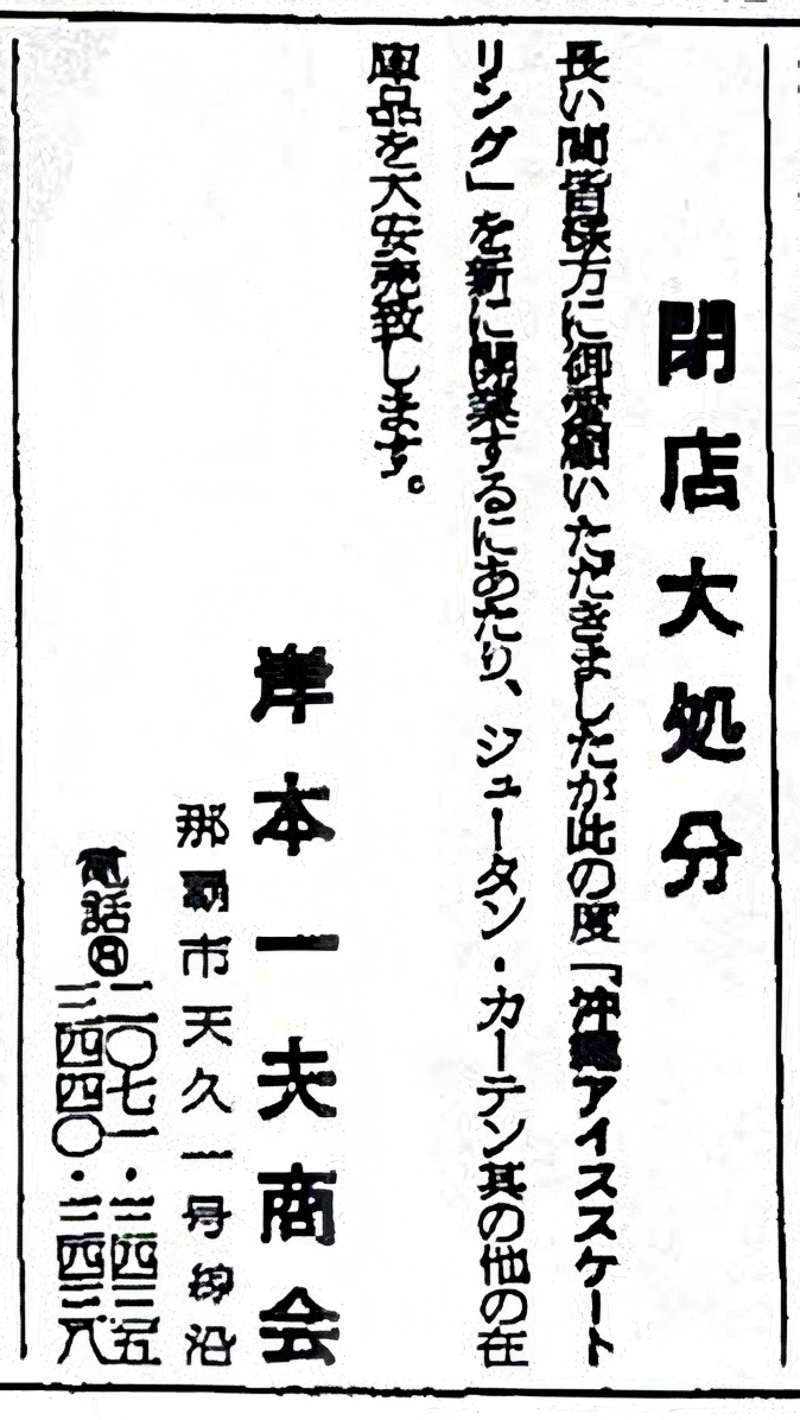 閉店大処分
長い間皆様方に御愛顧いただきましたが此の度「沖縄アイススケート
リング」を新に開業するにあたり、ジュータン・カーテン其の他の在
庫品を大安売致します。
岸本一夫商会
那覇市天久一号線沿
電話⑧二〇七一・三四三五
三四四〇・三四三八